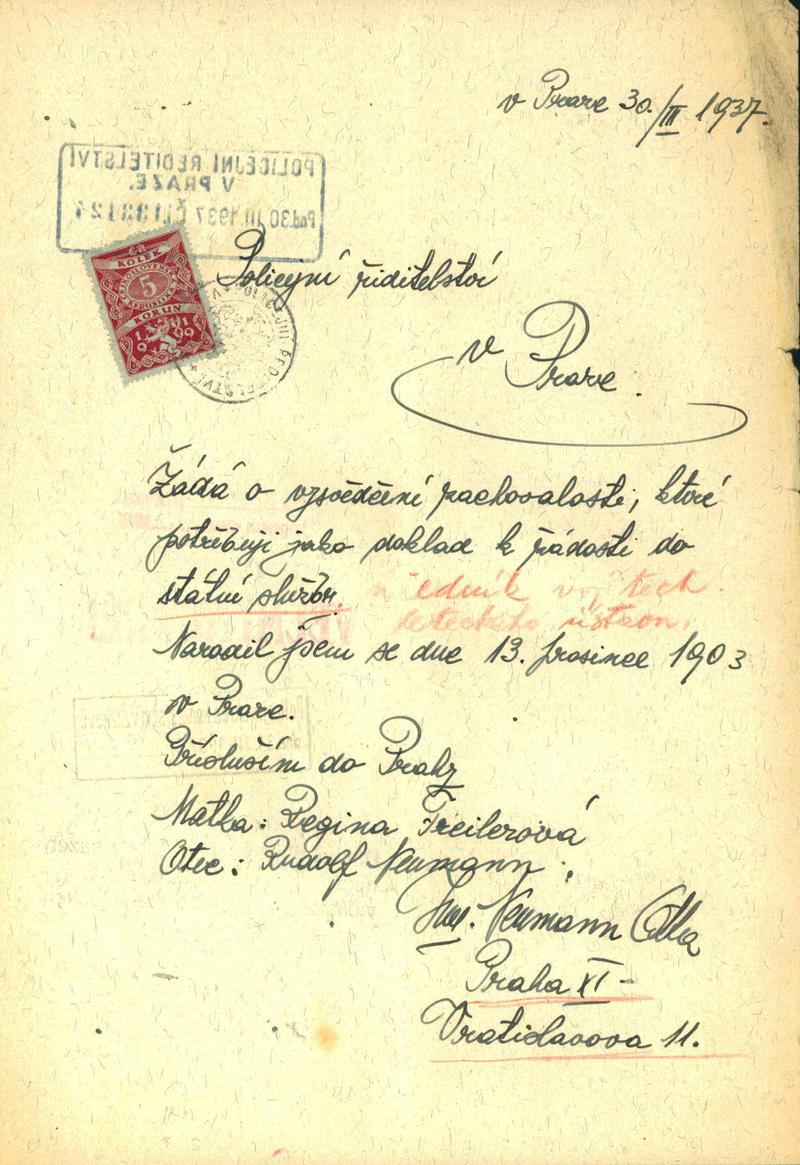 v Praze 30./III 1937.
POLICEJNÍ ŘEDITELSTVÍ
V PRAZE.
Pod. 30 III 1937 Č.
KOLEK
5
KORUN
1919
Policejní ředitelství
v Praze.
Žádá o vysvědčení zachovalosti, které
potřebuji jako doklad k žádosti do
státní služby. úředník voj. tech.
leteckého ústavu.
Narodil jsem se dne 13. prosince 1903
v Praze.
Přísluším do Prahy
Matka: Regina Freilerová
Otec: Rudolf Neumann;
Neumann Otta
Praha XI -
Vratislavova 11.